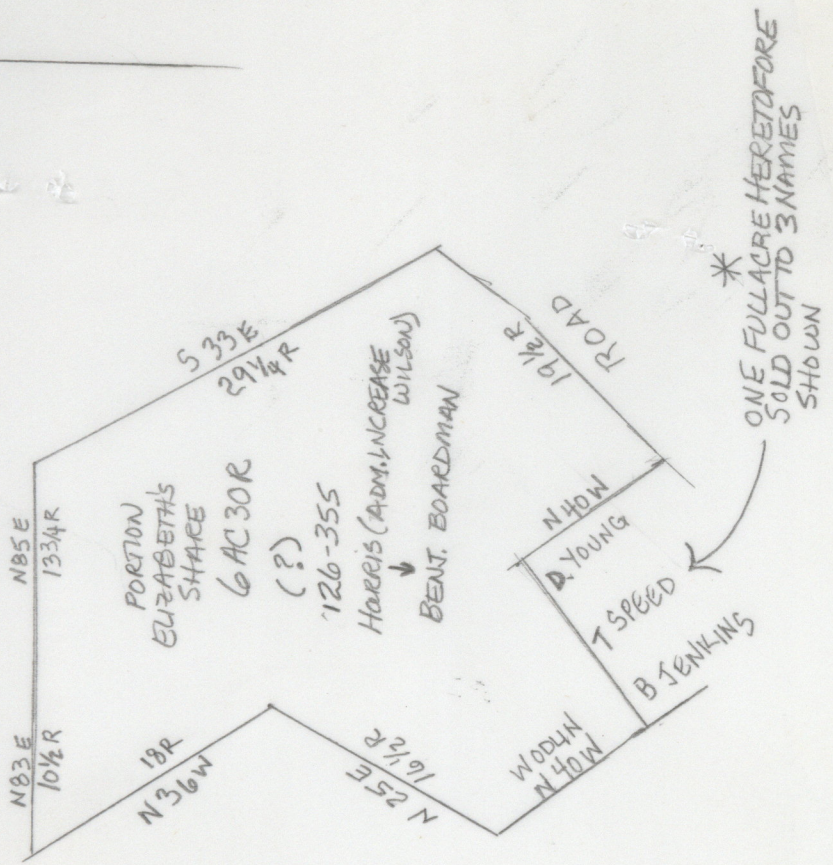 N83E
10½R
N85E
13¾R
S 33 E
29¼ R
18R
N36W
PORTION
ELIZABETH'S
SHARE
6 AC 30 R
(?)
126-355
HARRIS (ADM. INCREASE
WILSON)
BENJ. BOARDMAN
N 25 E
16½R
19½R
ROAD
N 40W
D. YOUNG
T SPEED
B JENKINS
WODLIN
N 40W
*
ONE FULL ACRE HERETOFORE
SOLD OUT TO 3 NAMES
SHOWN